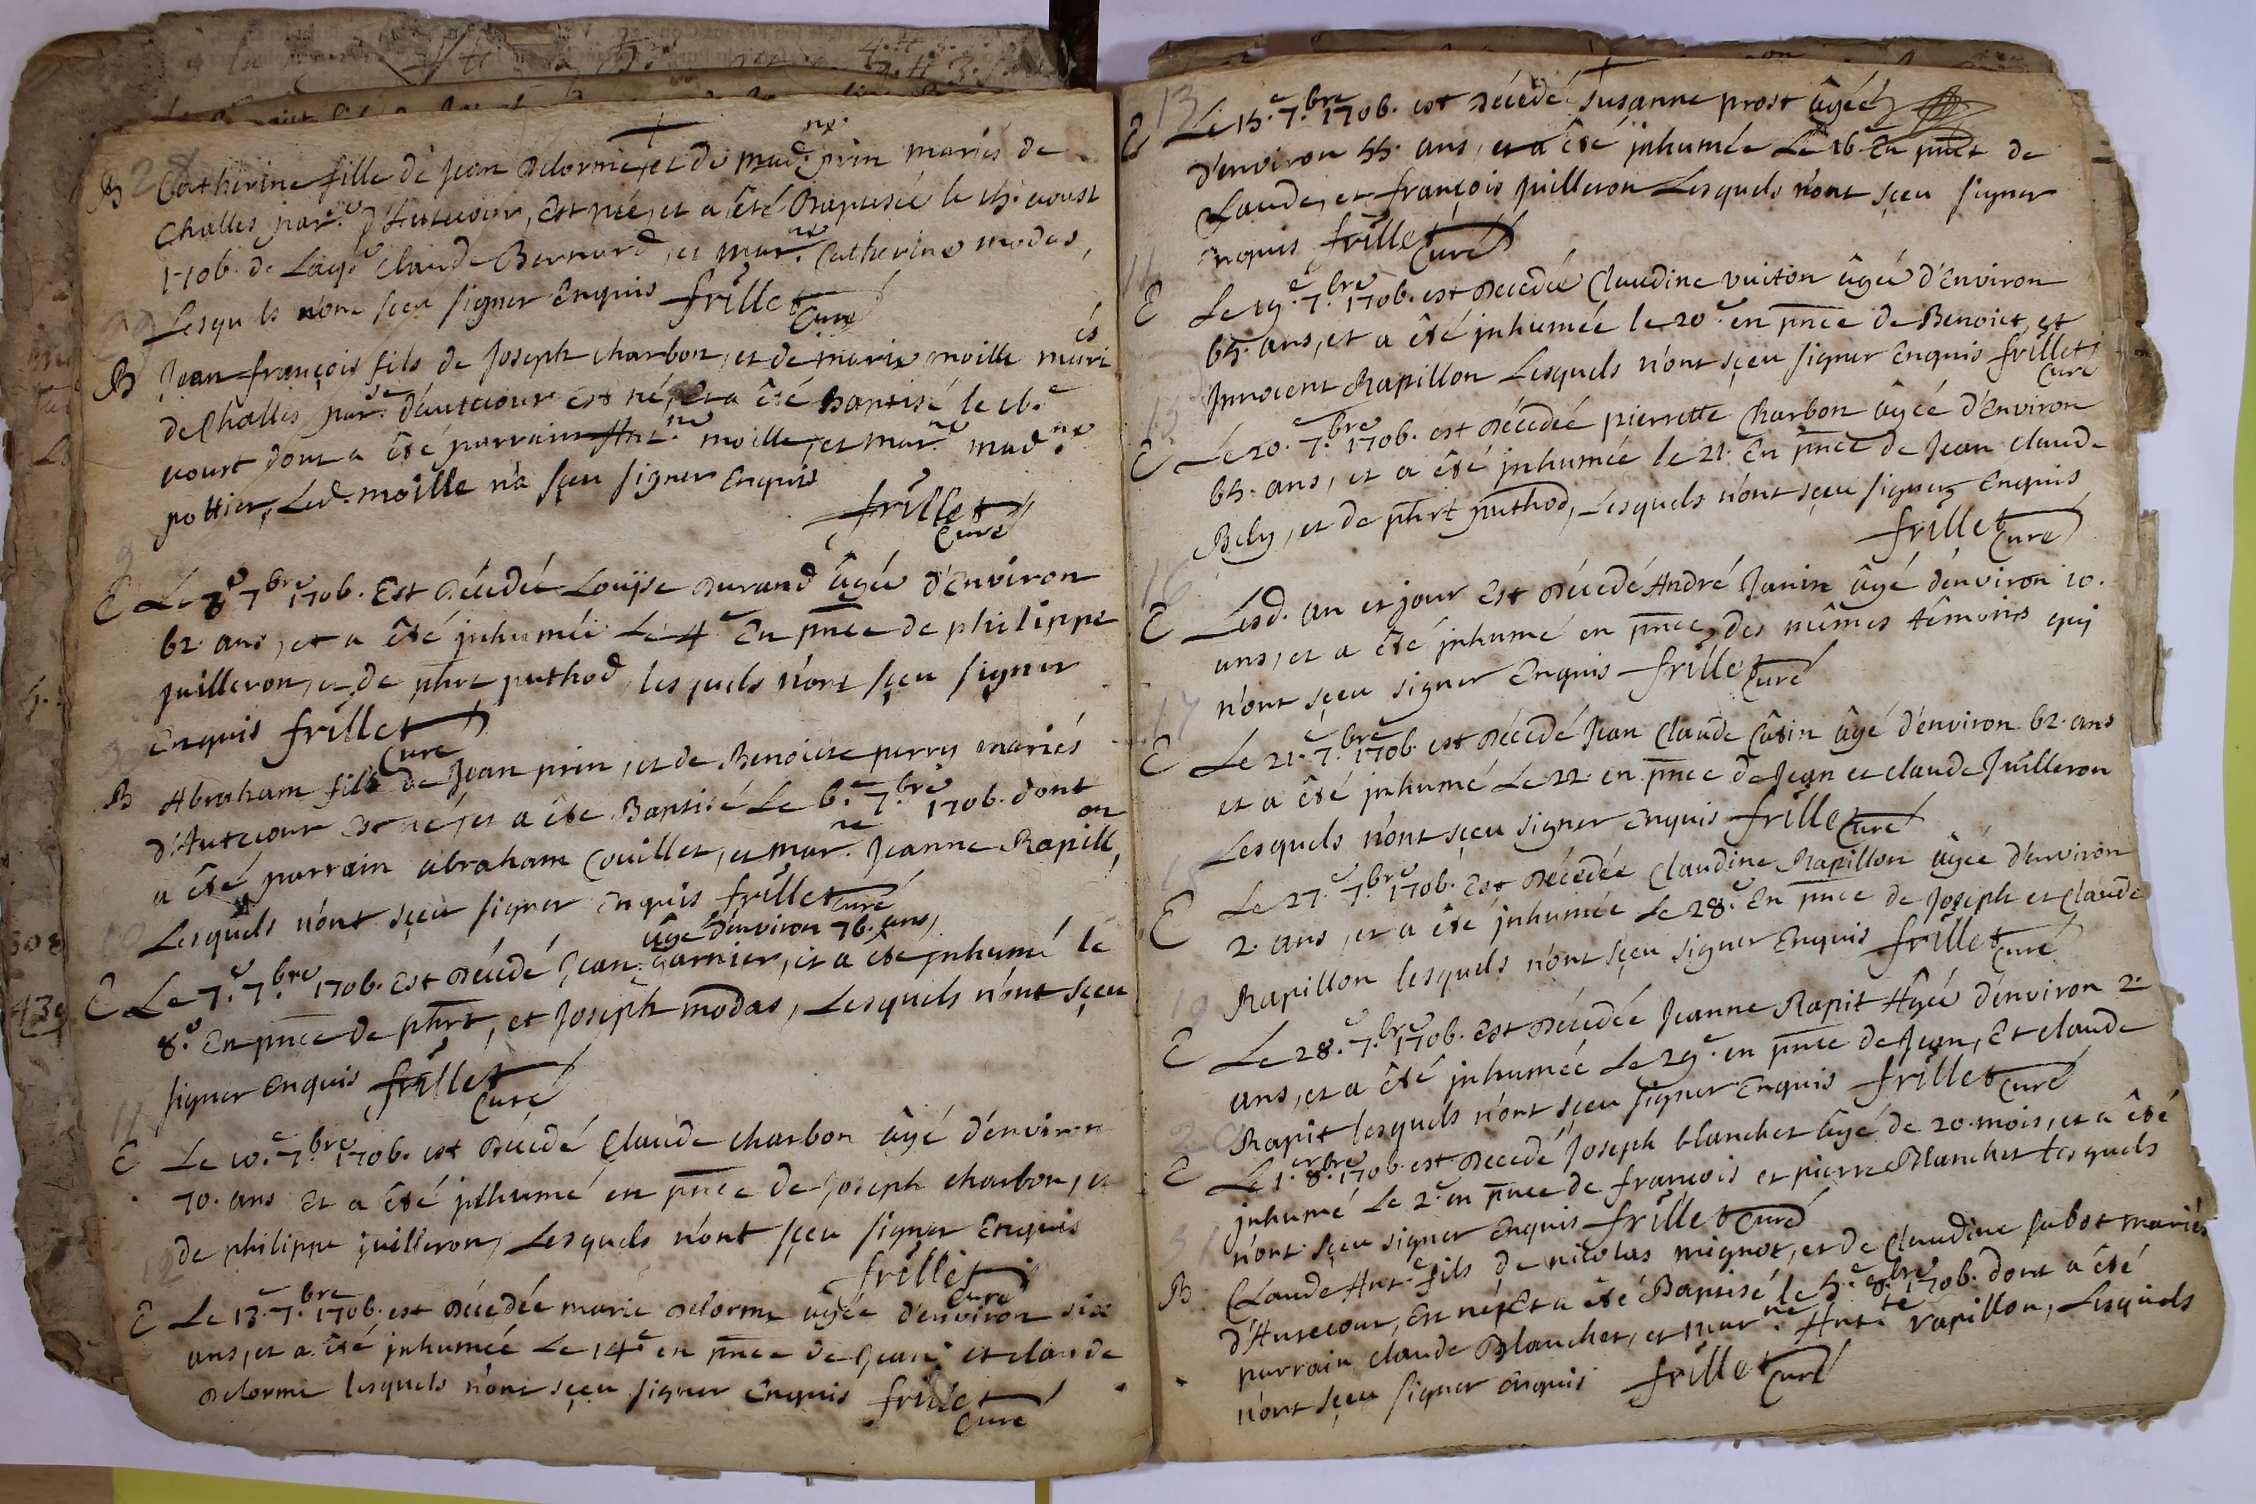 B Catherine fille de Jean Delorme, et de mad.ne prin mariés de
Challes par.e d'Autecour, est née, et a été Baptisée le 15. aoust
1706. de Laq.e Claude Bernard, et mar.ne Catherine modas,
Lesquels n'ont sçeu signer Enquis frillet
Curé
B Jean françois fils de Joseph charbon, et de marie moille mariés
de Challes par.se d'autecour est né, Et a été Baptisé le 16.e
aoust dont a été parrain Ant.ne moille, et mar.ne mad.ne
pottier, Led. moille n'a sçeu signer Enquis
frillet
Curé
E Le 3.e 7.bre 1706. Est décédée Louÿse Durand âgée d'Environ
62. ans, et a été inhumée Le 4.e En pnce de philippe
juilleron, et de phrt puthod, lesquels n'ont sçeu signer
Enquis frillet
Curé
B Abraham fils de Jean prin, et de Benoicte perry mariés
d'Autecour est né, et a été Baptisé Le 6.e 7.bre 1706. dont
a été parrain abraham Couillet, et mar.ne Jeanne Rapillon,
Lesquels n'ont sçeu signer Enquis frillet Curé
âgé d'environ 76. ans,
E Le 7.e 7.bre 1706. Est décédé Jean garnier, et a été inhumé le
8.e En pnce de phrt, et Joseph modas, Lesquels n'ont sçeu
signer Enquis frillet
Curé
E Le 10.e 7.bre 1706. est décédé Claude charbon âgé d'environ
70. ans Et a été inhumé en pnce de Joseph charbon, et
de philippe juilleron, Lesquels n'ont sçeu signer Enquis
frillet
Curé
E Le 13.e 7.bre 1706. est décédée marie Delorme âgée d'environ six
ans, et a été inhumée Le 14.e en pnce de Jean, et claude
Delorme lesquels n'ont sçeu signer Enquis frillet
Curé
13
E Le 15.e 7.bre 1706. est décédé Susanne prost âgée
d'environ 55. ans, et a été inhumée Le 16.e En pnce de
Claude, et françois Juilleron Lesquels n'ont sçeu signer
Enquis frillet
Curé
E Le 19.e 7.bre 1706. est décédée Claudine vuiton âgée d'Environ
65. ans, et a été inhumée le 20.e en pnce de Benoict, et
Innocent Rapillon Lesquels n'ont sçeu signer Enquis frillet
Curé
E Le 20.e 7.bre 1706. est décédée pierrette Charbon âgée d'Environ
65. ans, et a été inhumée le 21. En pnce de Jean claude
Bely, et de phrt puthod, Lesquels n'ont sçeu signer Enquis
frillet Curé
16
E Lesd. an et jour Est décédé André Janin âgé d'environ 10.
ans, et a été inhumé en pnce des mêmes témoins qui
n'ont sçeu signer Enquis frillet Curé
17
E Le 21.e 7.bre 1706. est décédé Jean Claude Catin âgé d'environ 62. ans
et a été inhumé Le 22. en pnce de Jean et claude Juilleron
Lesquels n'ont sçeu signer Enquis frillet Curé
E Le 27.e 7.bre 1706. Est décédée Claudine Rapillon âgée d'environ
2. ans, et a été inhumée Le 28.e En pnce de Joseph et Claude
Rapillon lesquels n'ont sçeu signer Enquis frillet Curé
19
E Le 28.e 7.bre 1706. Est décédée Jeanne Rapit Agée d'environ 2.
ans, et a été inhumée Le 29.e en pnce de Jean, Et claude
Rapit lesquels n'ont sçeu signer Enquis frillet Curé
E Le 1.er 8.bre 1706. est décédé Joseph blanchet âgé de 20. mois, et a été
inhumé Le 2.e en pnce de françois et pierre Blanchet Lesquels
n'ont sçeu signer Enquis frillet Curé
B Claude Ant.e fils de nicolas mignot, et de Claudine sabot mariés
d'Autecour, Est né, Et a été Baptisé le 5.e 8.bre 1706. dont a été
parrain claude Blanchet, et mar.ne Ant.te rapillon, Lesquels
n'ont sçeu signer Enquis frillet Curé